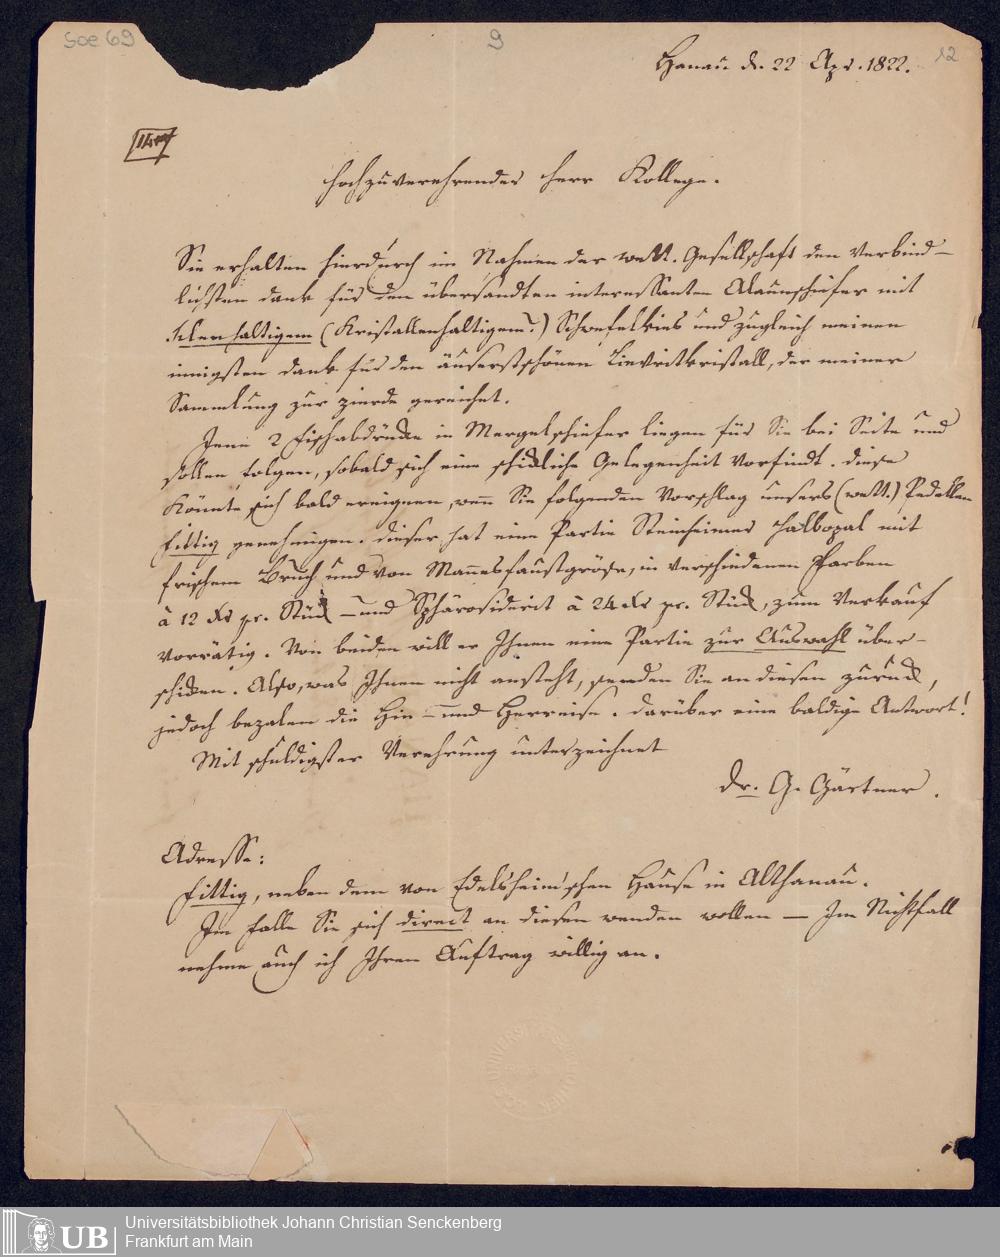 Soe 69
9
12
Hanau d. 22 Apr. 1822.
Hochzuverehrender Herr Kollege.
Sie erhalten hierdurch im Nahmen der wett. Gesellschaft den verbind-
lichsten dank für den übersandten interessanten Alaunschiefer mit
haltigem (Kristallenhaltigem?) Schwefelkies und zugleich meinen
innigsten dank für den äuserstschönen Lievritkristall, der meiner
Sammlung zur zierde gereichet.
Jene 2 Fischabdrücke in Mergelschiefer liegen für Sie bei Seite und
sollen folgen, sobald sich eine schickliche Gelegenheit vorfindt. diese
könnte sich bald ereignen, wenn Sie folgenden Vorschlag unsers (wett.) Pedellen
Fittig genehmigen. dieser hat eine Partie Steinheimer Halbopal mit
frischem Bruch und von Mannesfaustgröse, in verschiedenen Farben
à 12 Xr pr. Stück – und Sphärosiderit à 24 Xr pr. Stück, zum Verkauf
vorrätig. Von beiden will er Ihnen eine Partie zur Auswahl über-
schicken. Also, was Ihnen nicht ansteht, senden Sie an diesen zurück,
jedoch bezalen die Hin- und Herreise. darüber eine baldige Antwort!
Mit schuldigster Verehrung unterzeichnet
Dr. G. Gärtner.
Adresse:
Fittig, neben dem von Edelsheim'schen Hause in Althanau.
Im Falle Sie sich direct an diesen wenden wollen — Im Nichtfall
nehme auch ich Ihren Auftrag willig an.
UB
Universitätsbibliothek Johann Christian Senckenberg
Frankfurt am Main